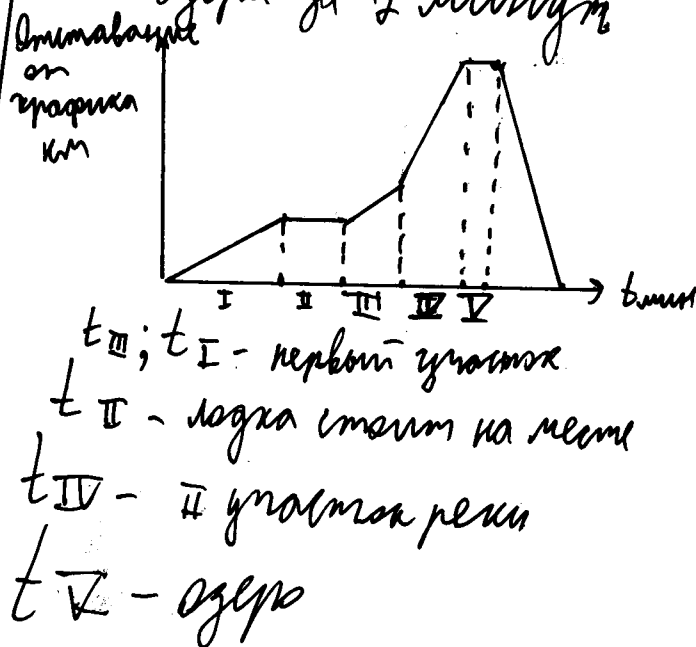 озера за 2 минут
Отставание
от
графика
км
I II III IV V
t мин
t III ; t I - первый участок
t II - лодка стоит на месте
t IV - II участок реки
t V - озеро